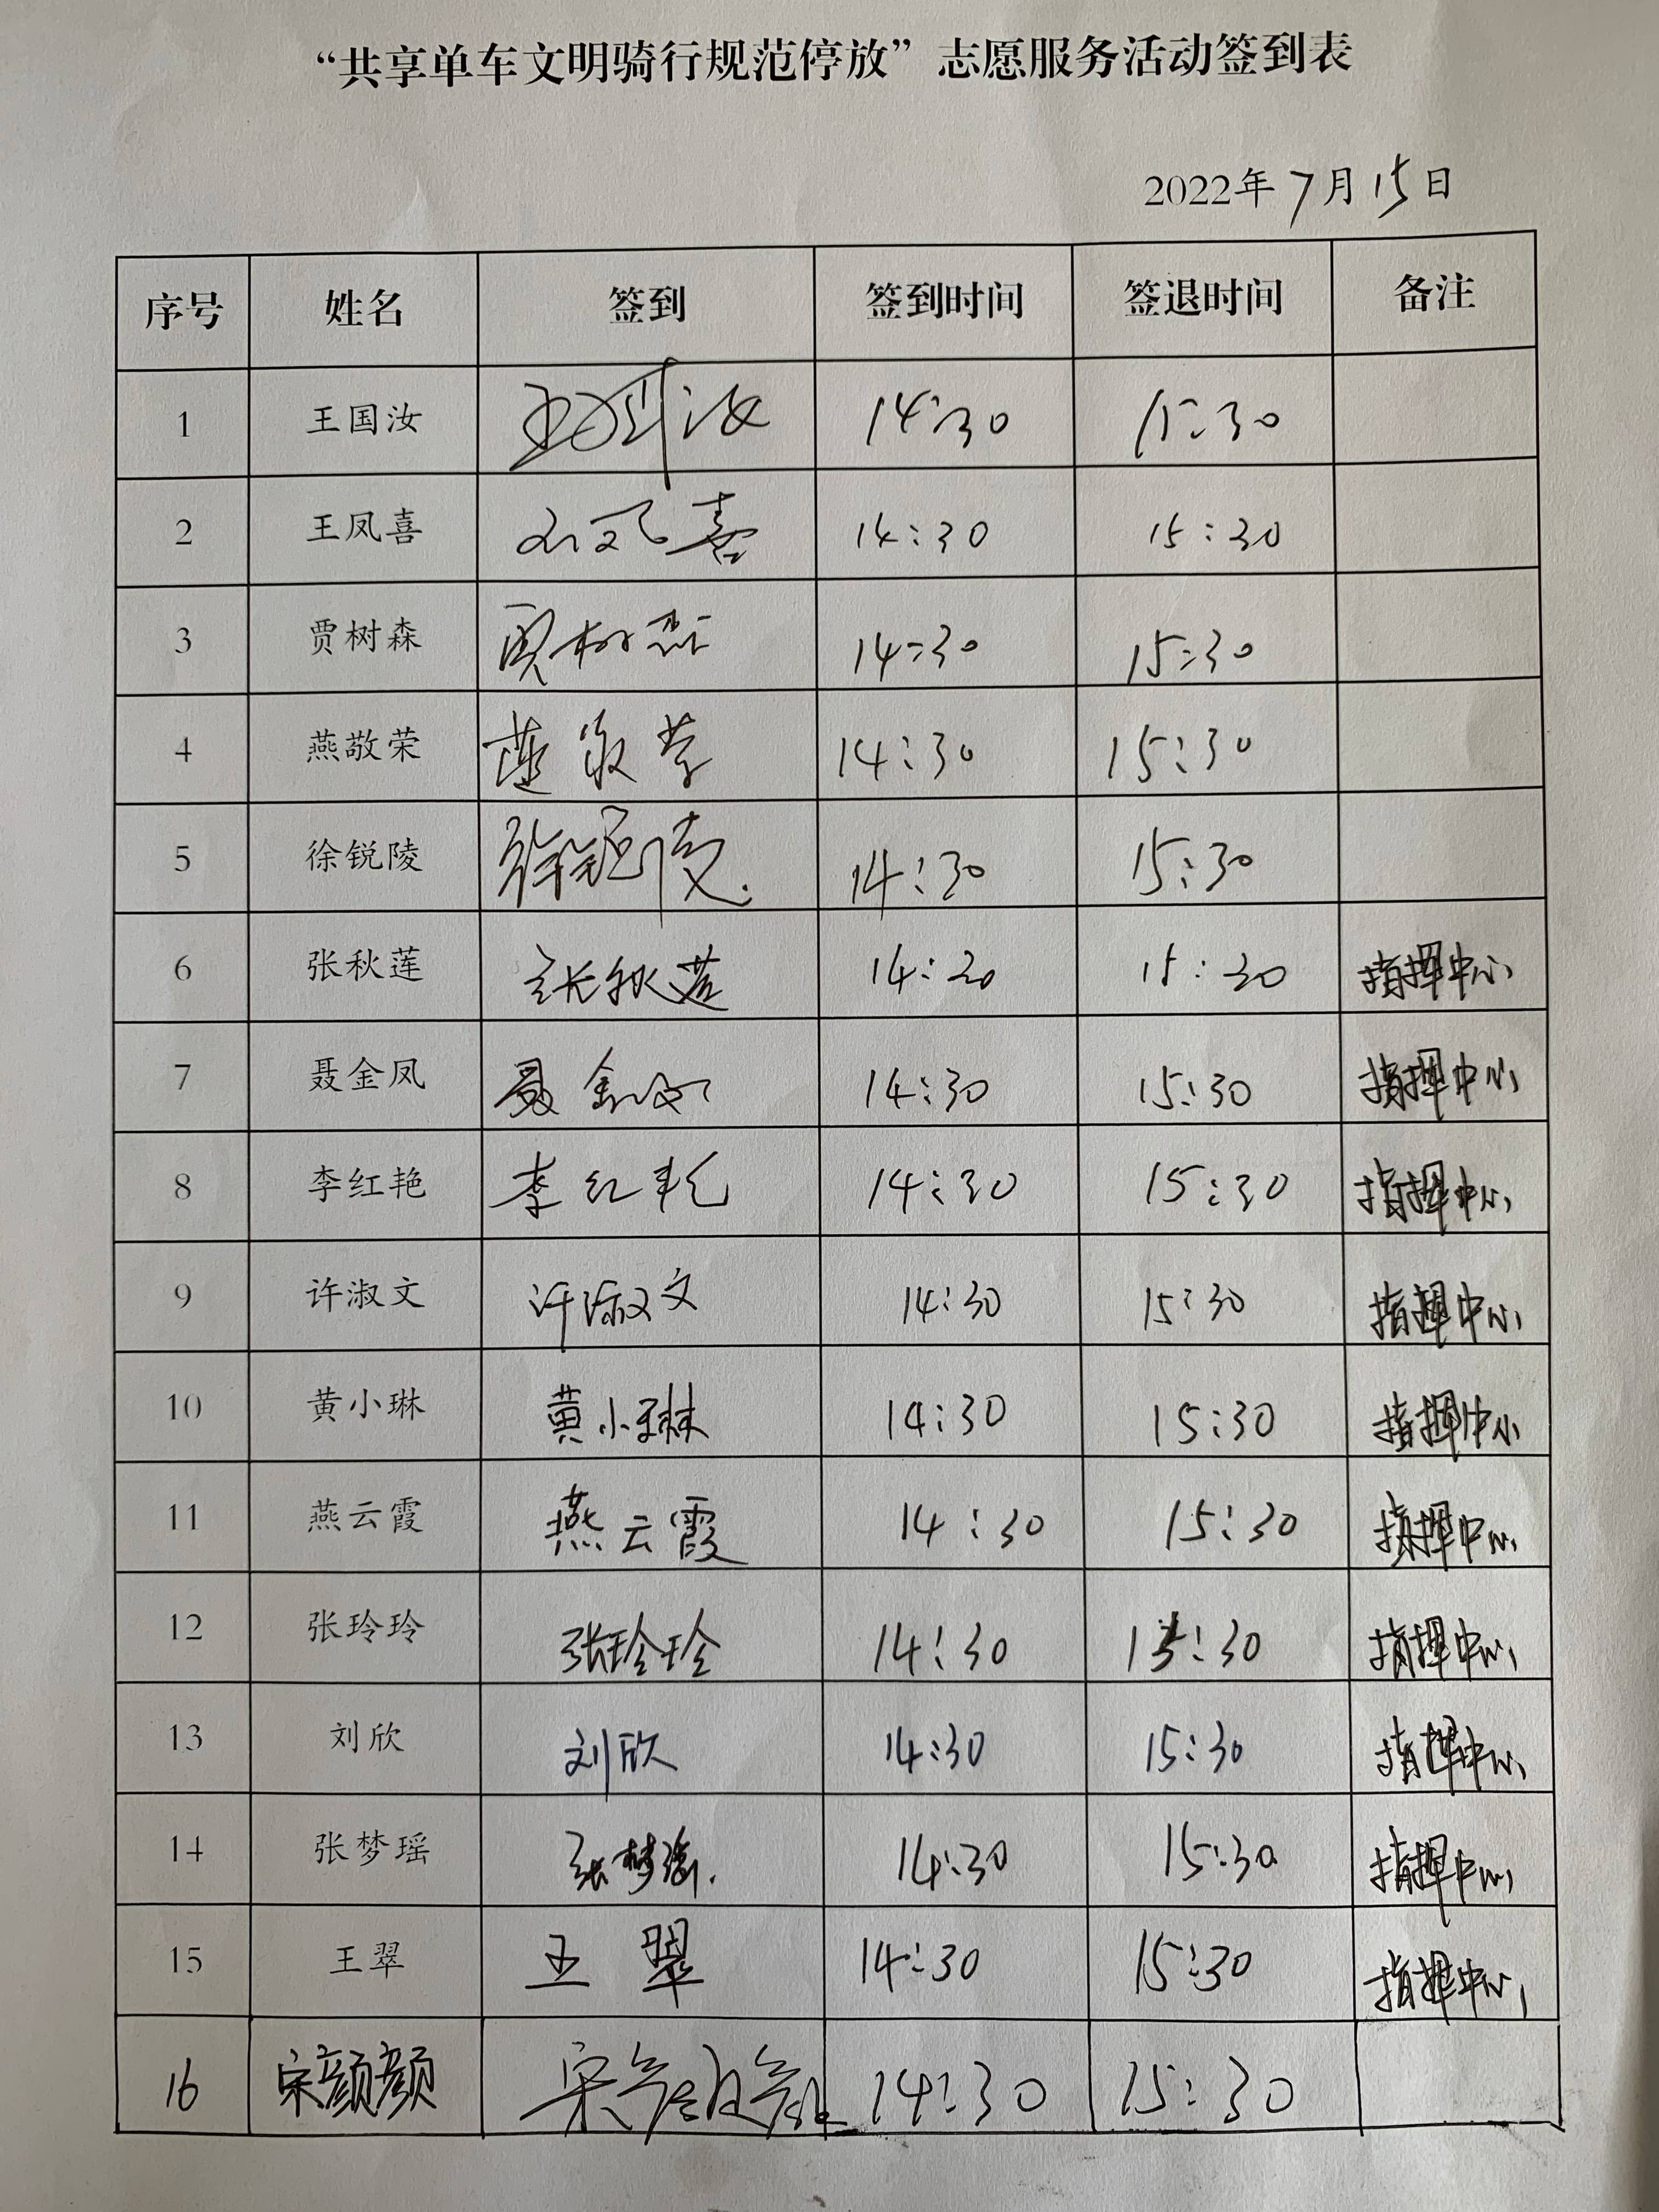 “共享单车文明骑行规范停放”志愿服务活动签到表
2022年7月15日
序号 姓名 签到 签到时间 签退时间 备注
1 王国汝 王国汝 14:30 15:30
2 王凤喜 王凤喜 14:30 15:30
3 贾树森 贾树森 14:30 15:30
4 燕敬荣 燕敬荣 14:30 15:30
5 徐锐陵 徐锐陵. 14:30 15:30
6 张秋莲 张秋莲 14:30 15:30 指挥中心
7 聂金凤 聂金凤 14:30 15:30 指挥中心
8 李红艳 李红艳 14:30 15:30 指挥中心
9 许淑文 许淑文 14:30 15:30 指挥中心
10 黄小琳 黄小琳 14:30 15:30 指挥中心
11 燕云霞 燕云霞 14:30 15:30 指挥中心
12 张玲玲 张玲玲 14:30 15:30 指挥中心
13 刘欣 刘欣 14:30 15:30 指挥中心
14 张梦瑶 张梦瑶. 14:30 15:30 指挥中心
15 王翠 王翠 14:30 15:30 指挥中心
16 宋颜颜 宋颜颜 14:30 15:30